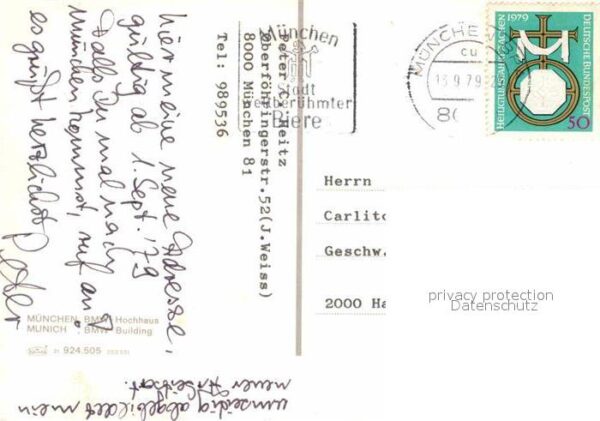 hier meine neue Adresse,
gültig ab 1. Sept. '79
Falls Du mal nach
München kommst, ruf an!
es grüßt herzlichst Peter
umseitig abgebildet mein
neuer Arbeitsort.
MÜNCHEN BMW Hochhaus
MUNICH BMW Building
924.505
Peter C. Heitz
Oberföhringerstr.52(J.Weiss)
8000 München 81
Tel: 989536
München
Stadt
weltberühmter
Biere
MÜNCHEN
13.9.79
1979
DEUTSCHE BUNDESPOST
HEILIGTUMSFAHRT AACHEN
50
Herrn
Carlito
Geschw.
2000 Ha
privacy protection
Datenschutz